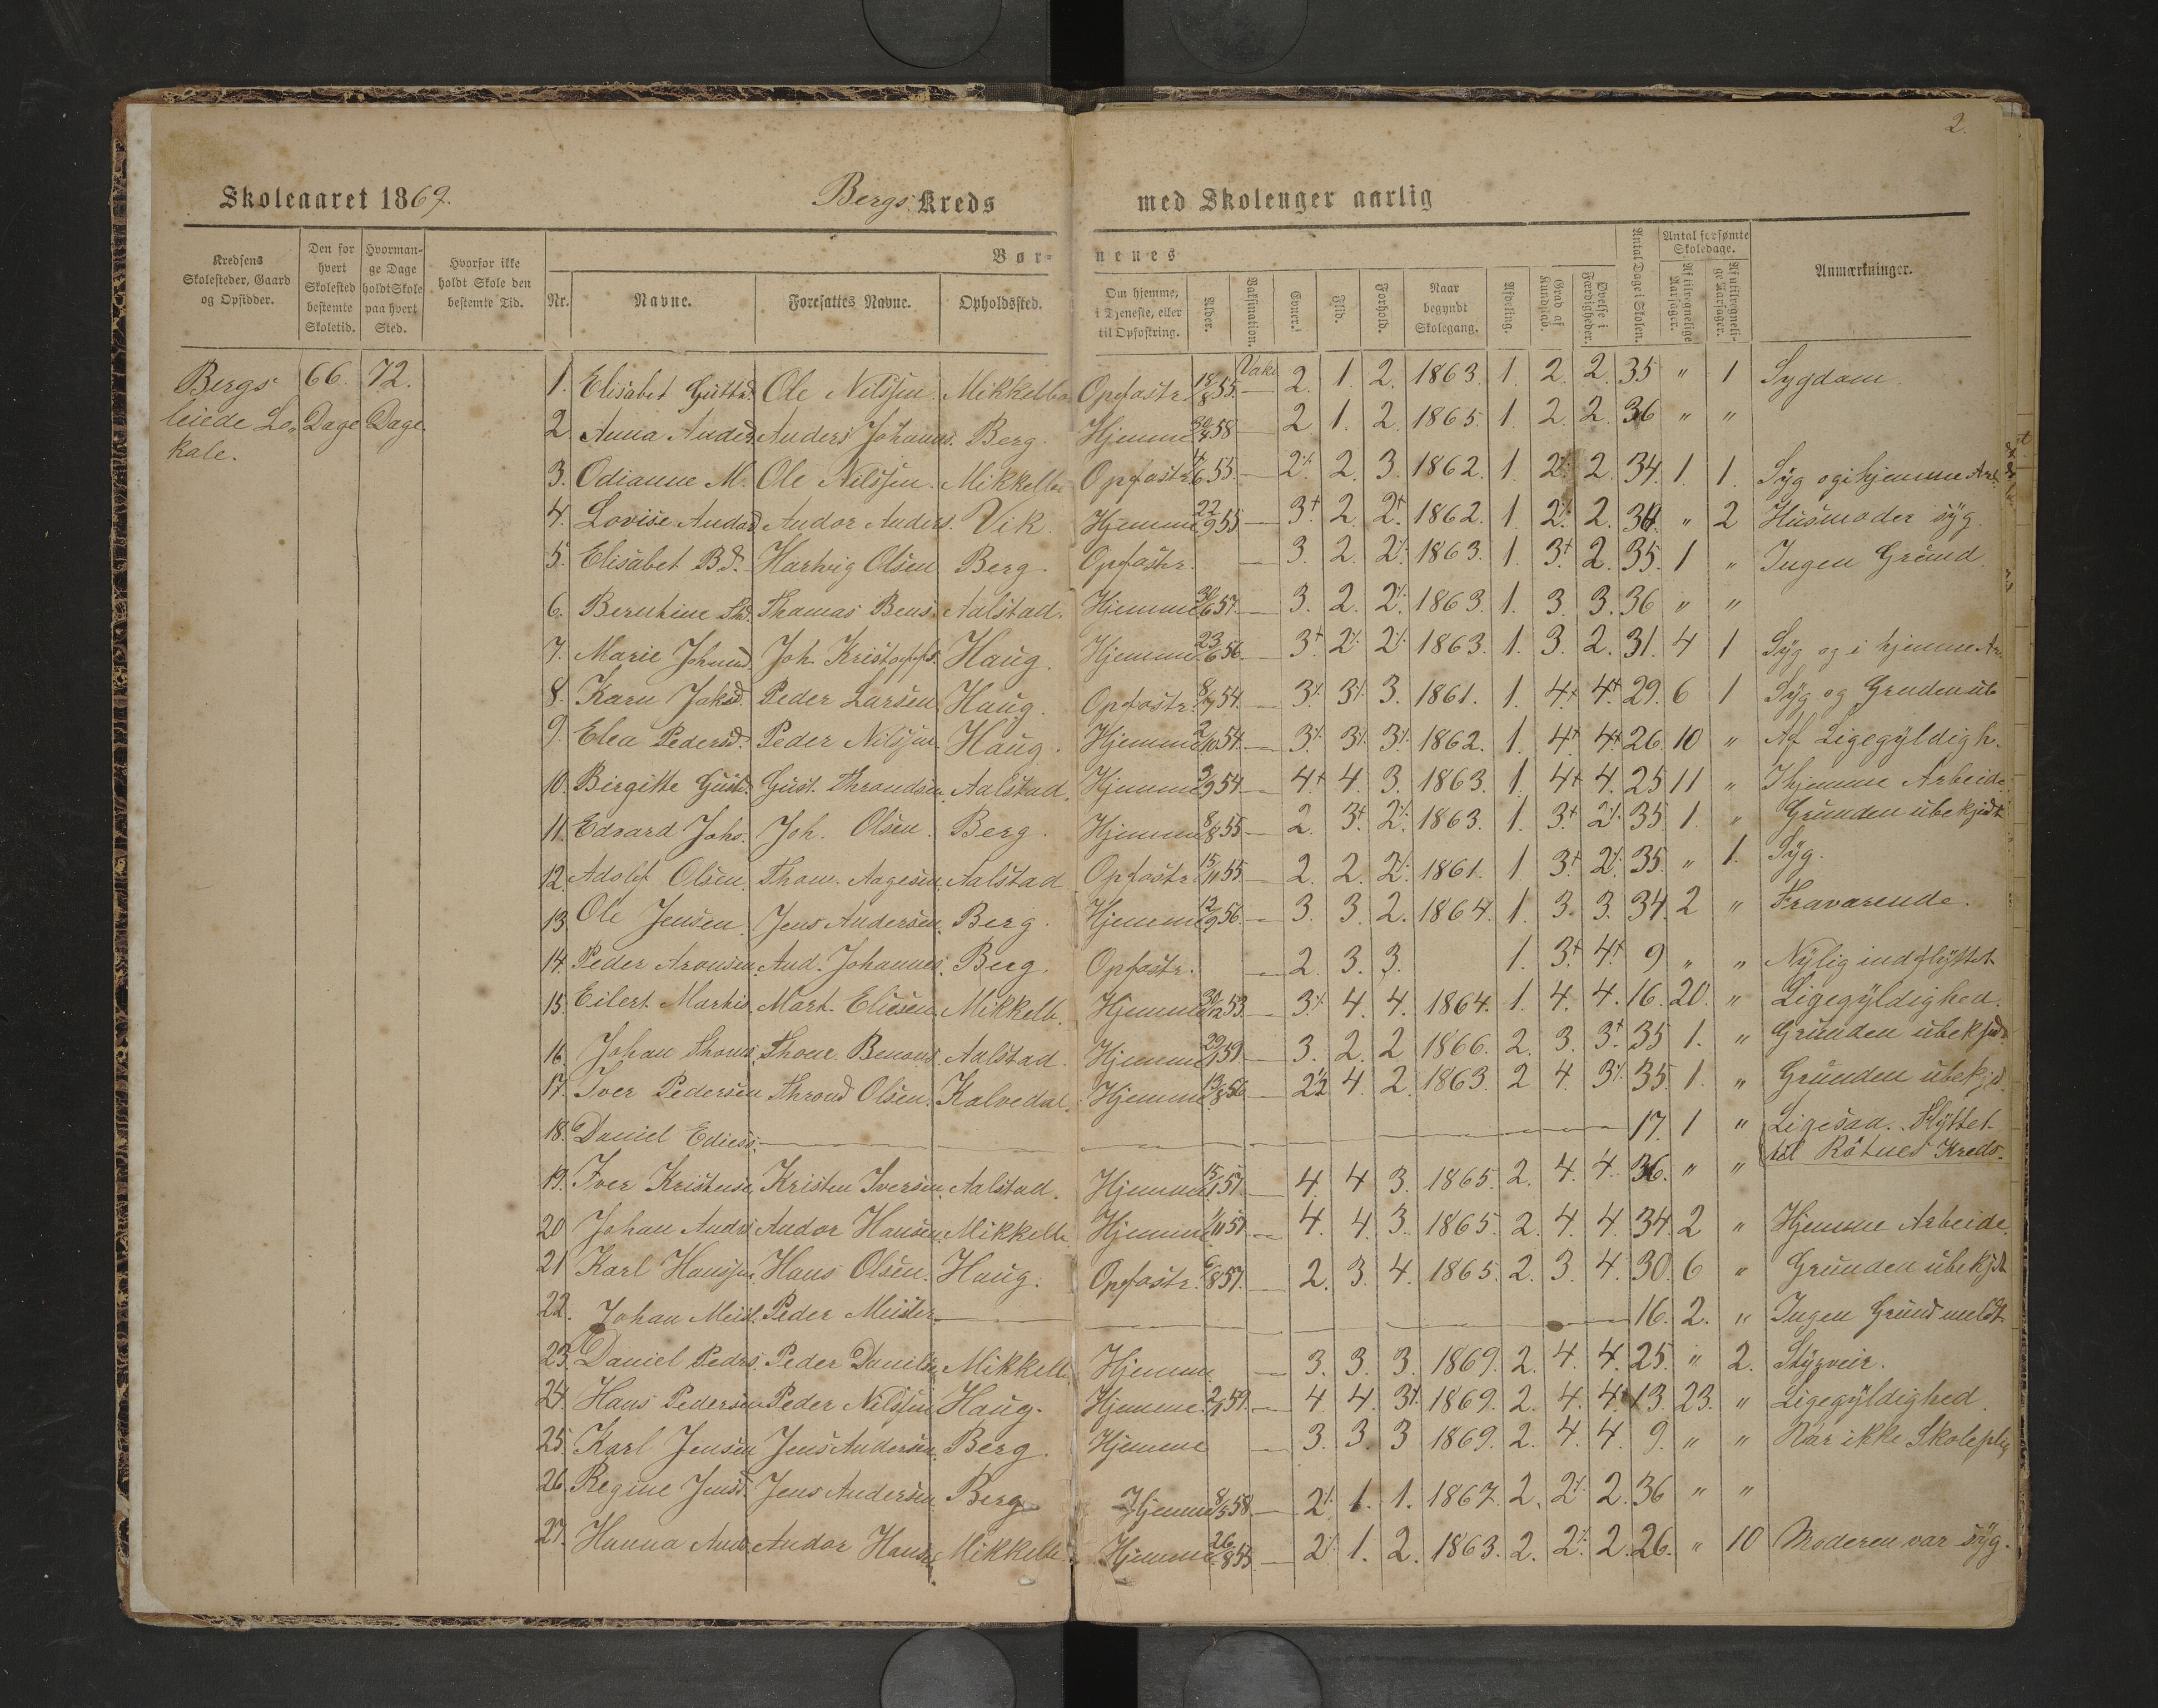 2.
Skoleaaret 1869. Bergs Kreds med Skolenger aarlig
Kredsens Skolesteder, Gaard og Opsidder. Den for hvert Skolested bestemte Skoletid. Hvormange Dage holdt Skole paa hvert Sted. Hvorfor ikke holdt Skole den bestemte Tid. Børnenes Antal Dage i Skolen. Antal forsømte Skoledage. Anmærkninger.
Nr. Navne. Foresattes Navne. Opholdssted. Om hjemme, i Tjeneste, eller til Opfostring. Alder. Vakcination. Evner. Flid. Forhold. Naar begyndt Skolegang. Afdeling. Grad af Kundskab. Øvelse i Færdigheder. Af tilregnelige Aarsager. Af utilregnelige Aarsager.
Bergs 66. 72.
leiede Lo„ Dage Dage
kale.
1. Elisabet Gustd. Ole Nilssen. Mikkelbo Opfostr. 18/8 55. Vaks 2. 1. 2. 1863. 1. 2. 2. 35 " 1 Sygdom.
2 Anna Andesd. Anders Johanns. Berg. Hjemme 30/4 58 — 2 1. 2. 1865. 1. 2. 2. 36 " "
3. Odianne M. Ole Nilssen. Mikkelb. Opfostr. 55. — 2⁒ 2. 3. 1862. 1. 2⁒ 2. 34. 1. 1. Syg og i hjemme Arb.
4. Lovise Andord. Andor Anders. Vik. Hjemme 22/9 55 — 3+ 2. 2+ 1862. 1 2⁒ 2. 34. " 2 Husmoder syg.
5. Elisabet B.d. Hartvig Olsen Berg. Opfostr. — 3. 2. 2⁒ 1863. 1. 3+ 2. 35. 1 " Ingen Grund.
6. Berntine Thd. Thomas Bens. Aalstad. Hjemme 30/6 57. — 3. 2. 2⁒ 1863. 1. 3. 3. 36 " "
7. Marie Johnsd. Joh. Kristoffs. Haug. Hjemme 23/6 56. — 3+ 2⁒ 2⁒ 1863. 1. 3. 2. 31. 4 1 Syg og i hjemme Ar.
8. Karn Jakd. Peder Larsen Haug. Opfostr. 8/7 54. — 3⁒ 3⁒ 3. 1861. 1. 4+ 4+ 29. 6 1 Syg og Grunden ub
9. Elea Pedersd. Peder Nilssen Haug. Hjemme 2/10 54. — 3⁒ 3⁒ 3⁒ 1862. 1. 4+ 4+ 26. 10 " Af Ligegyldigh.
10. Birgitte Gustd. Gust. Throndsen Aalstad. Hjemme 3/9 54 — 4+ 4. 3. 1863. 1. 4+ 4. 25 11 " I hjemme Arbeide
11. Edvard Johs. Joh. Olsen. Berg. Hjemme 8/8 55 — 2. 3+ 2⁒ 1863. 1. 3+ 2⁒ 35. 1. " Grunden ubekjedt
12. Adolf Olsen. Thom. Aagesen. Aalstad Opfostr. 15/11 55 — 2. 2. 2⁒ 1861. 1 3+ 2⁒ 35. " 1. Syg.
13. Ole Jensen. Jens Andersen. Berg. Hjemme 12/9 56. — 3. 3. 2. 1864. 1. 3. 3. 34. 2 " Fraværende.
14. Peder Aronsen. And. Johannes. Berg. Opfostr. — 2. 3. 3. 1. 3+ 4+ 9 " " Nylig indflyttet
15. Eilert Martins. Mart. Eliesen. Mikkelb. Hjemme 30/12 53. — 3⁒ 4. 4. 1864. 1. 4. 4. 16. 20. " Ligegyldighed.
16. Johan Thoms. Thom. Benons. Aalstad. Hjemme 29/1 59 — 3. 2. 2 1866. 2. 3. 3+ 35 1. " Grunden ubekjed.
17. Iver Pedersen Thrond Olsen. Kalvedal. Hjemme 13/8 56 — 2½ 4 2. 1863. 2 4. 3⁒ 35. 1. " Grunden ubekjd.
18. Daniel Edies. — 17. 1 " Ligesaa. Flyttet
til Rötnes Kreds.
19. Iver Kristense. Kristen Iversen. Aalstad. Hjemme 15/1 57. — 4. 4 3. 1865. 2. 4. 4. 36. " "
20. Johan Andrs. Andor Hansen. Mikkelb. Hjemme 1/11 57. — 4. 4. 3. 1865. 2. 4. 4. 34. 2 " Hjemme Arbeide.
21. Karl Hanssen. Hans Olsen. Haug. Opfostr. 6/8 57. — 2. 3. 4. 1865. 2. 3. 4. 30. 6 " Grunden ubekjdt
22. Johan Meist. Peder Meister — 16. 2. " Ingen Grund meldt
23. Daniel Pedrs. Peder Danilse. Mikkelb. Hjemme — 3. 3. 3. 1869. 2. 4. 4. 25. " 2. Styrveir.
24. Hans Pedersen Peder Nilssen Haug. Hjemme 59. — 4. 4. 3⁒ 1869. 2. 4. 4. 13. 23. " Ligegyldighed.
25. Karl Jensen Jens Andersen. Berg. Hjemme — 3. 3. 3 1869. 2. 4. 4. 9. " " Var ikke Skoleplig
26. Regine Jensd. Jens Andersen Berg. Hjemme 8/5 58. — 2⁒ 1. 1. 1867. 2. 2⁒ 2. 36 " "
27. Hanna And. Andor Hanse. Mikkelb. Hjemme 26/8 55. — 2⁒ 1. 2. 1863. 2. 2⁒ 2. 26. " 10 Moderen var syg.